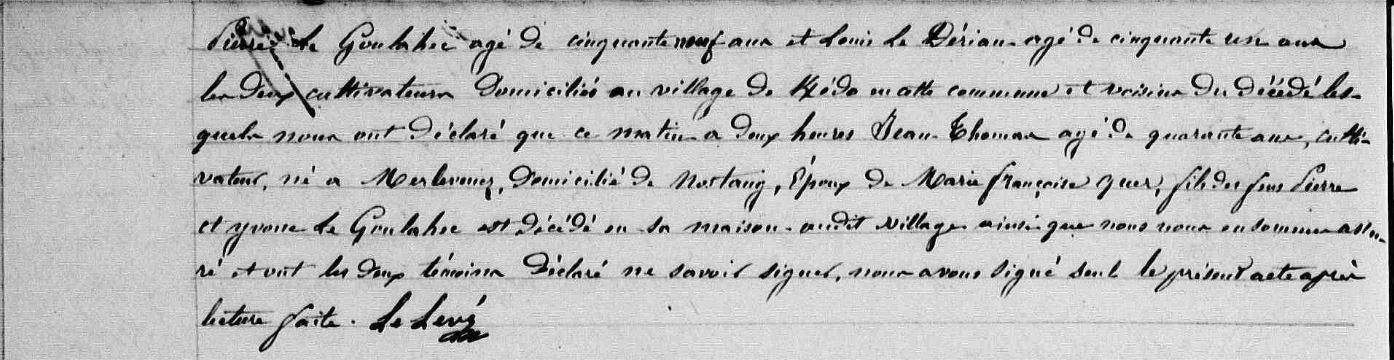 Pierre Le Goulahec agé de cinquante neuf ans et Louis Le Dérian agé de cinquante un ans
les deux cultivateurs domiciliés au village de Kédo en cette commune et voisins du décédé les-
quels nous ont déclaré que ce matin a deux heures Jean Thomas agé de quarante ans, culti-
vateur, né a Merlevenez, domicilié de Nostang, Époux de Marie françoise quer, fils des feus Pierre
et yvonne Le Goulahec est décédé en sa maison audit village ainsi que nous nous en sommes assu-
ré et ont les deux témoins déclaré ne savoir signer, nous avons signé seul le présent acte après
lecture faite. Le Levé